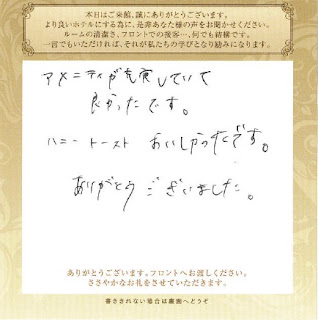 本日はご来館、誠にありがとうございます。
より良いホテルにする為に、是非あなた様の声をお聞かせください。
ルームの清潔さ、フロントでの接客…、何でも結構です。
一言でもいただければ、それが私たちの学びとなり励みになります。
アメニティが充実していて
良かったです。
ハニートースト おいしかったです。
ありがとうございました。
ありがとうございます。フロントへお渡しください。
ささやかなお礼をさせていただきます。
書ききれない場合は裏面へどうぞ